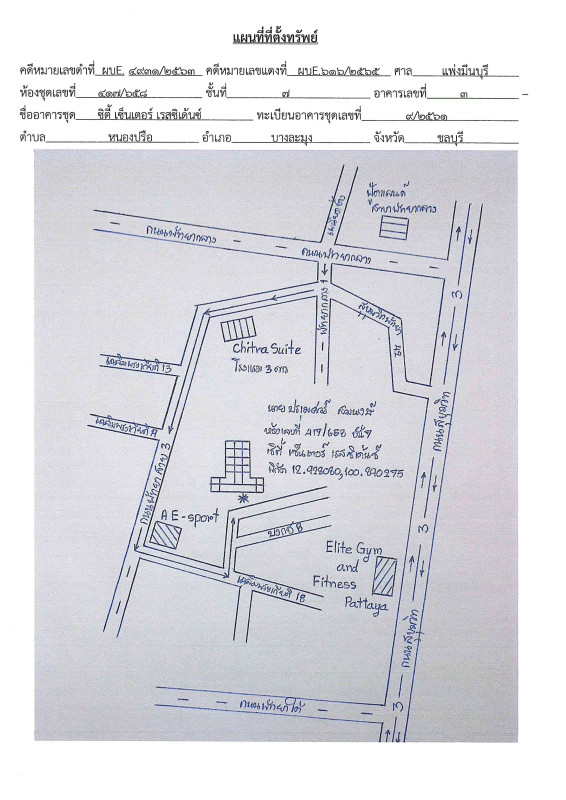 แผนที่ที่ตั้งทรัพย์
คดีหมายเลขดำที่ ผบE. ๔๙๓๑/๒๕๖๓ คดีหมายเลขแดงที่ ผบE.๖๑๖/๒๕๖๕ ศาล แพ่งมีนบุรี
ห้องชุดเลขที่ ๔๑๗/๖๕๘ ชั้นที่ ๗ อาคารเลขที่ ๓ –
ชื่ออาคารชุด ซิตี้ เซ็นเตอร์ เรสซิเด้นซ์ ทะเบียนอาคารชุดเลขที่ ๙/๒๕๖๑
ตำบล หนองปรือ อำเภอ บางละมุง จังหวัด ชลบุรี
สาขาพัทยากลาง
ถนนพัทยากลาง
ถนนพัทยากลาง
3
พัทยากลาง 1
Chitra Suite
โรงแรม 3 ดาว
เฉลิมพระเกียรติ 13
ถนนสุขุมวิท
ห้องเลขที่ 417/658 ชั้น 7
ซิตี้ เซ็นเตอร์ เรสซิเด้นซ์
พิกัด 12.928080,100.890295
ถนนพัทยา สาย 3
A E-sport
3
บงกช 8
Elite Gym
and
Fitness
Pattaya
เฉลิมพระเกียรติ 18
ถนนสุขุมวิท
3
ถนนพัทยาใต้